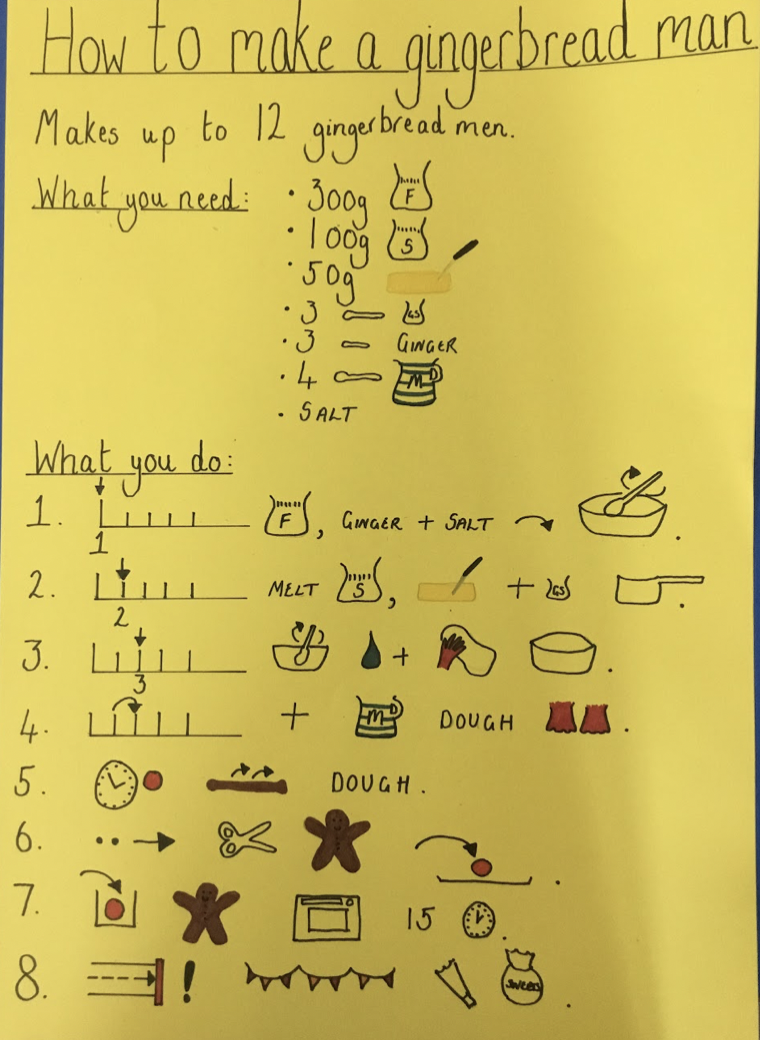 How to make a gingerbread man
Makes up to 12 gingerbread men.
What you need:
• 300g F
• 100g S
• 50g
• 3 GS
• 3 GINGER
• 4 MD
• SALT
What you do:
1. 1 F, GINGER + SALT .
2. 2 MELT S, + GS .
3. 3 + .
4. + MD DOUGH .
5. DOUGH.
6. .
7. 15 .
8. ! SWEETS .